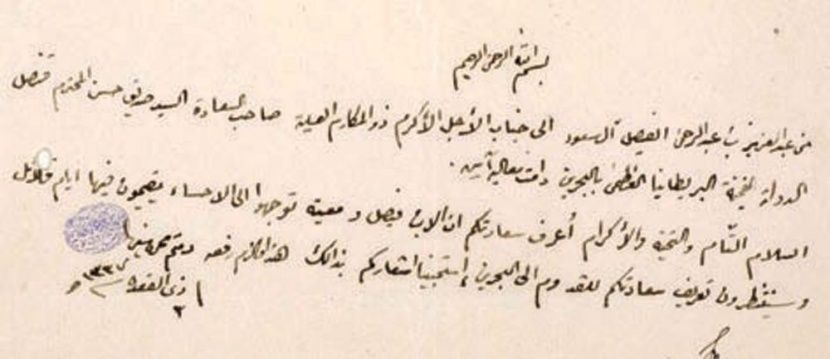 بسم الله الرحمن الرحيم
من عبدالعزيز بن عبدالرحمن الفيصل آل سعود الى جناب الأجل الأكرم ذو المكارم العلية صاحب السعادة السيد صديق حسن المحترم قنصل
الدولة الفخيمة البريطانيا العظمى بالبحرين دامت معاليه آمين.
السلام التام والتحية والأكرام أعرف سعادتكم ان الابن فيصل ومعيته توجهوا الى الاحساء يقيمون فيها ايام قلائل
وينتظرون تعريف سعادتكم للقدوم الى البحرين، استحبينا اشعاركم بذالك هذا مالزم رفعه ودمتم محروسين
٢ ذي القعدة ١٣٣٧